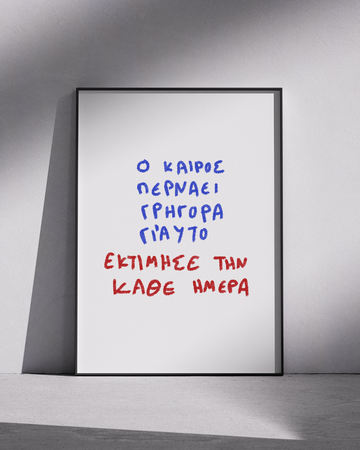 Ο ΚΑΙΡΟΣ
ΠΕΡΝΑΕΙ
ΓΡΗΓΟΡΑ
ΓΙ'ΑΥΤΟ
ΕΚΤΙΜΗΣΕ ΤΗΝ
ΚΑΘΕ ΗΜΕΡΑ